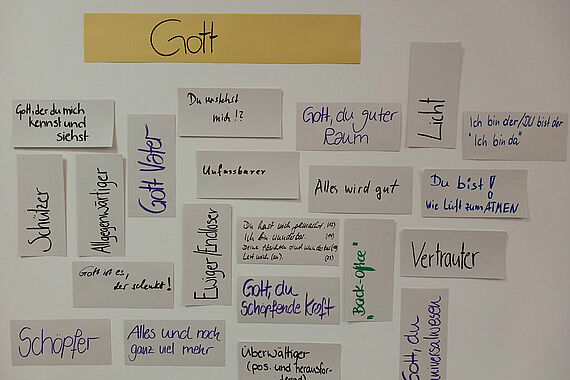 Gott
Gott, der du mich
kennst und
siehst
Du verstehst
mich !?
Gott, du guter
Raum
Licht
Ich bin der/DU bist der
"Ich bin da"
Schützer
Allgegenwärtiger
Gott Vater
Unfassbarer
Alles wird gut
Du bist!
wie Luft zum ATMEN
Gott ist es,
der schenkt!
Ewiger/Endloser
Du hast mich gemacht.
Ich bin wunderbar.
Deine Absichten sind wunderbar
Leit mich
Gott, du
schöpfende Kraft
"Back-office"
Vertrauter
Schöpfer
Alles und noch
ganz viel mehr
Überwältiger
(pos. und herausfor-
dernd)
Gott, du
Universalwesen